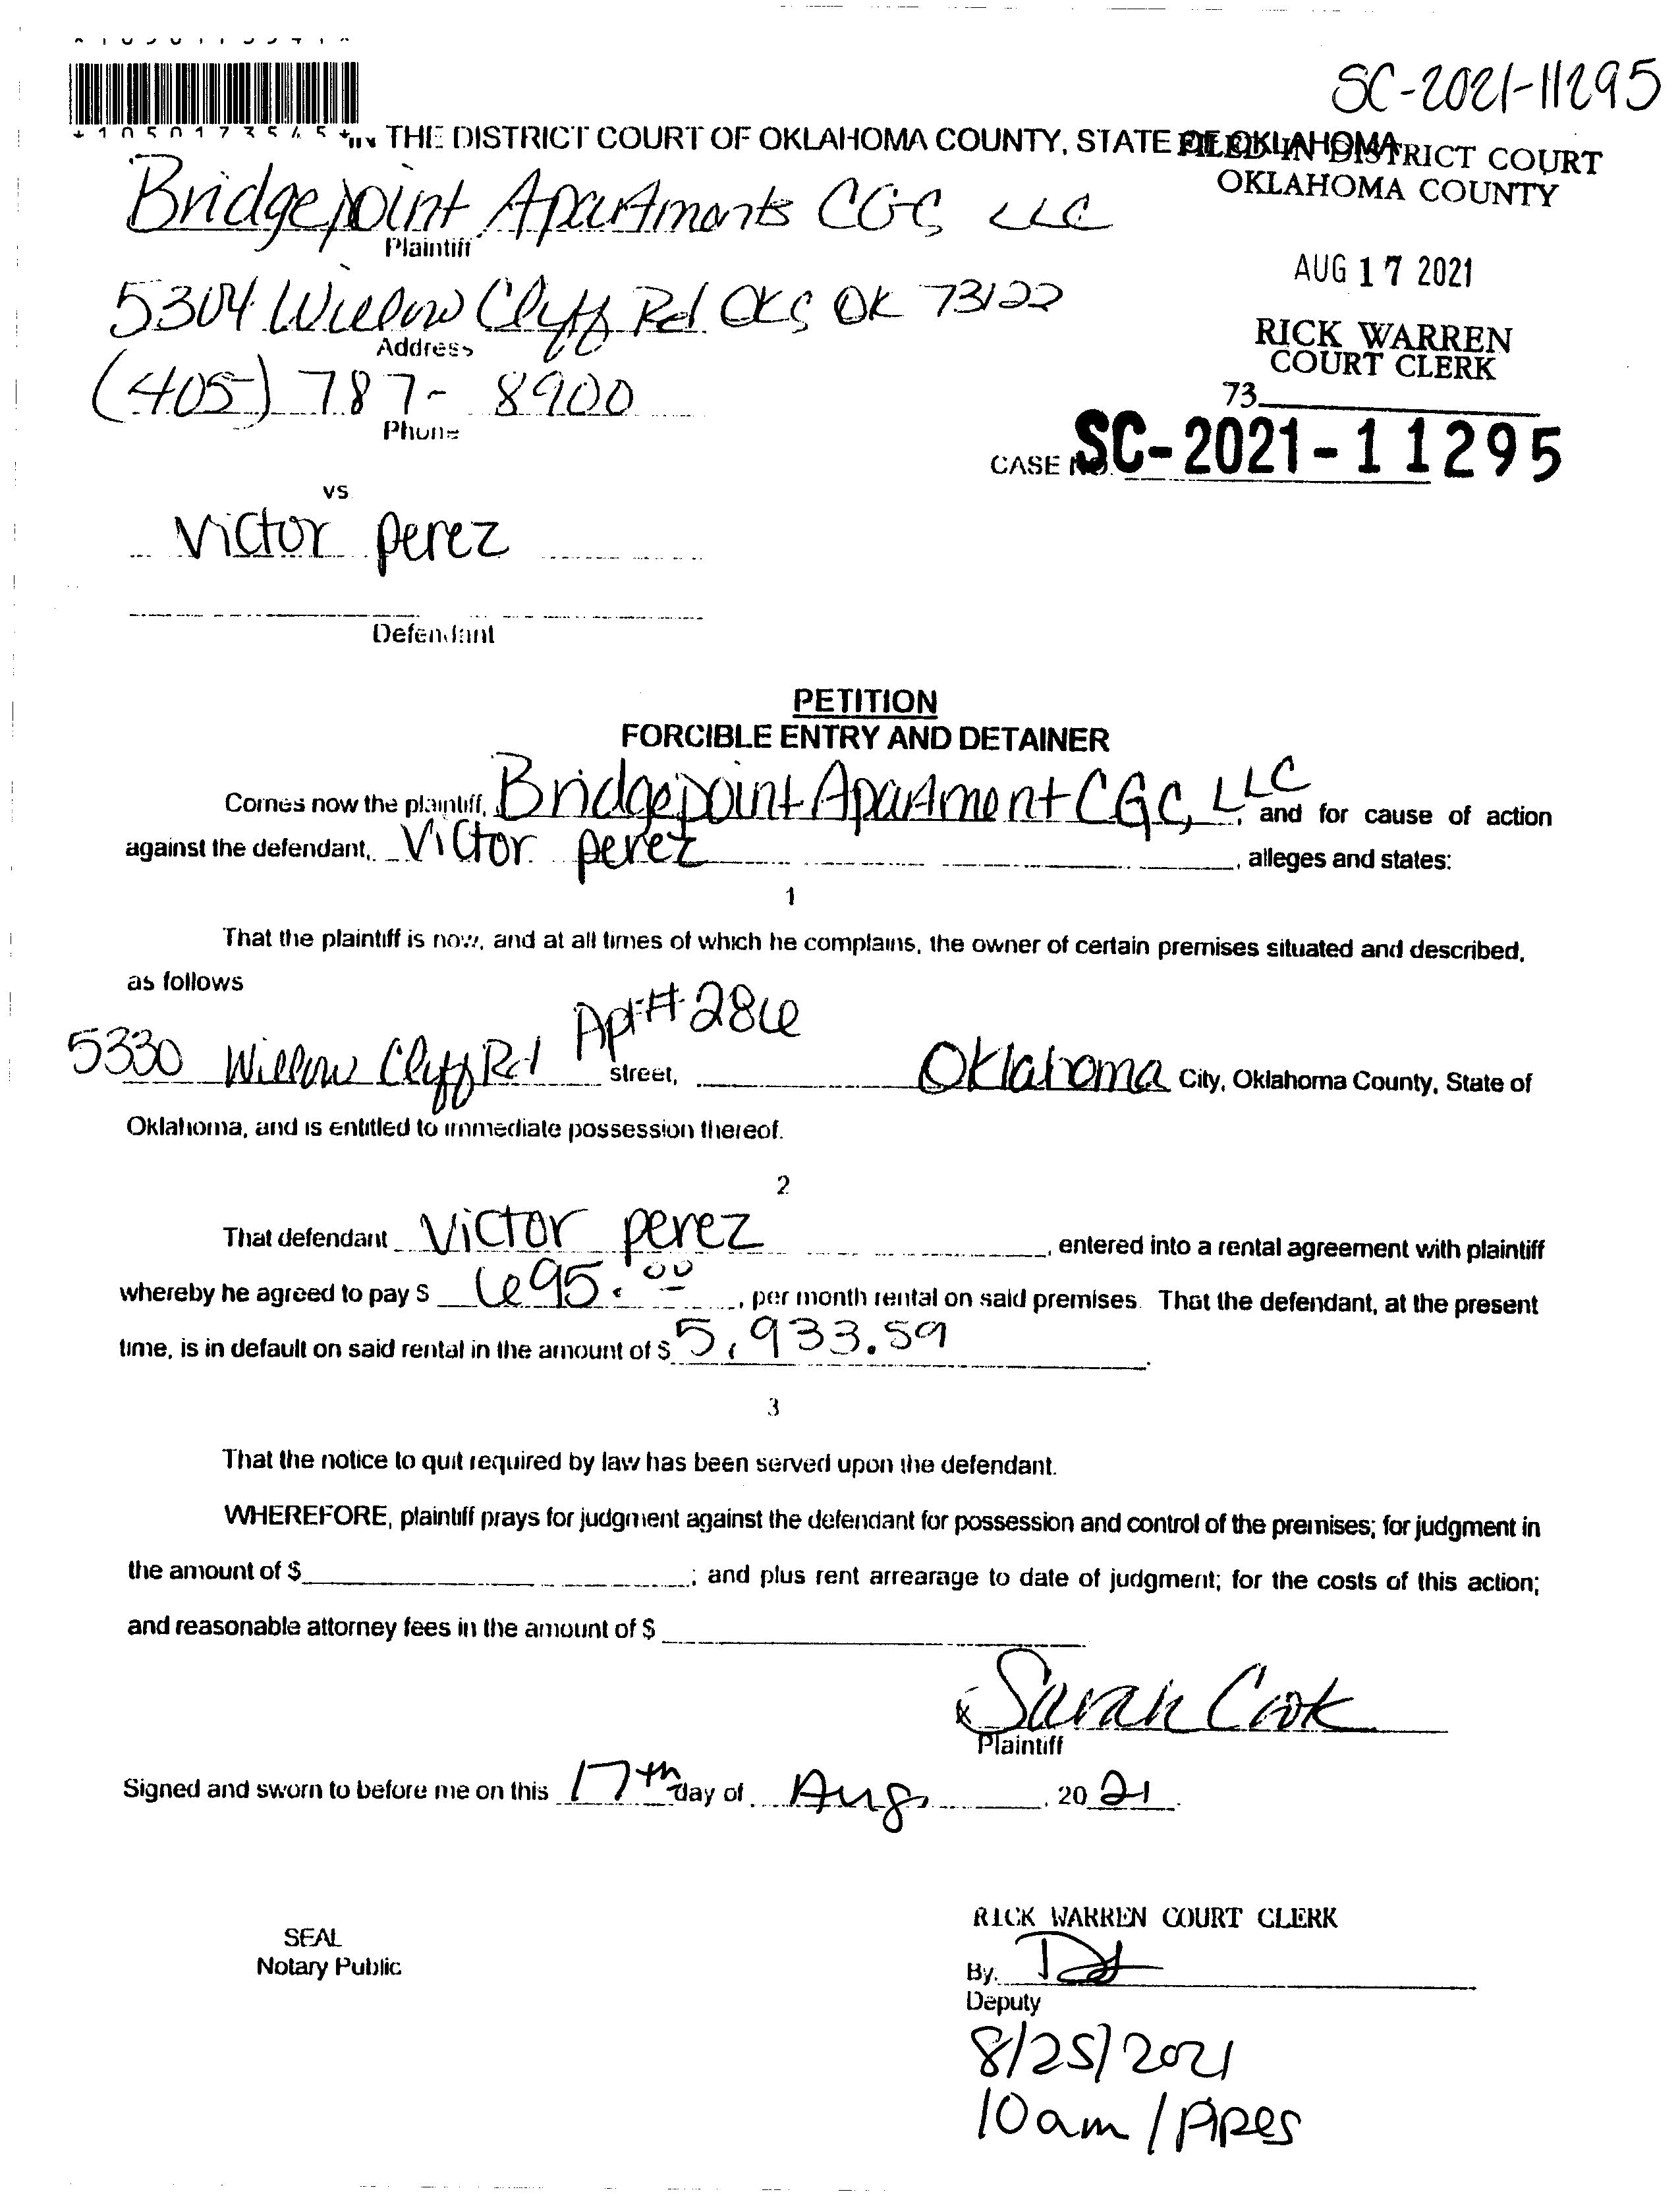 SC-2021-11295
IN THE DISTRICT COURT OF OKLAHOMA COUNTY, STATE OF OKLAHOMA
FILED IN DISTRICT COURT
OKLAHOMA COUNTY
Bridgepoint Apartments CGC, LLC
Plaintiff
AUG 17 2021
5304 Willow Cliff Rd OKC OK 73122
Address
RICK WARREN
COURT CLERK
(405) 787-8900
Phone
73
CASE NO. SC-2021-11295
vs
Victor perez
Defendant
PETITION
FORCIBLE ENTRY AND DETAINER
Comes now the plaintiff, Bridgepoint Apartment CGC, LLC, and for cause of action
against the defendant, Victor perez, alleges and states:
1
That the plaintiff is now, and at all times of which he complains, the owner of certain premises situated and described,
as follows
5330 Willow Cliff Rd Apt# 286 street, Oklahoma City, Oklahoma County, State of
Oklahoma, and is entitled to immediate possession thereof.
2
That defendant Victor perez, entered into a rental agreement with plaintiff
whereby he agreed to pay $ 695.00, per month rental on said premises. That the defendant, at the present
time, is in default on said rental in the amount of $ 5,933.59.
3
That the notice to quit required by law has been served upon the defendant.
WHEREFORE, plaintiff prays for judgment against the defendant for possession and control of the premises; for judgment in
the amount of $ ; and plus rent arrearage to date of judgment; for the costs of this action;
and reasonable attorney fees in the amount of $
x Sarah Cook
Plaintiff
Signed and sworn to before me on this 17th day of Aug, 2021.
RICK WARREN COURT CLERK
SEAL
Notary Public
By.
Deputy
8/25/2021
10am / Pipes